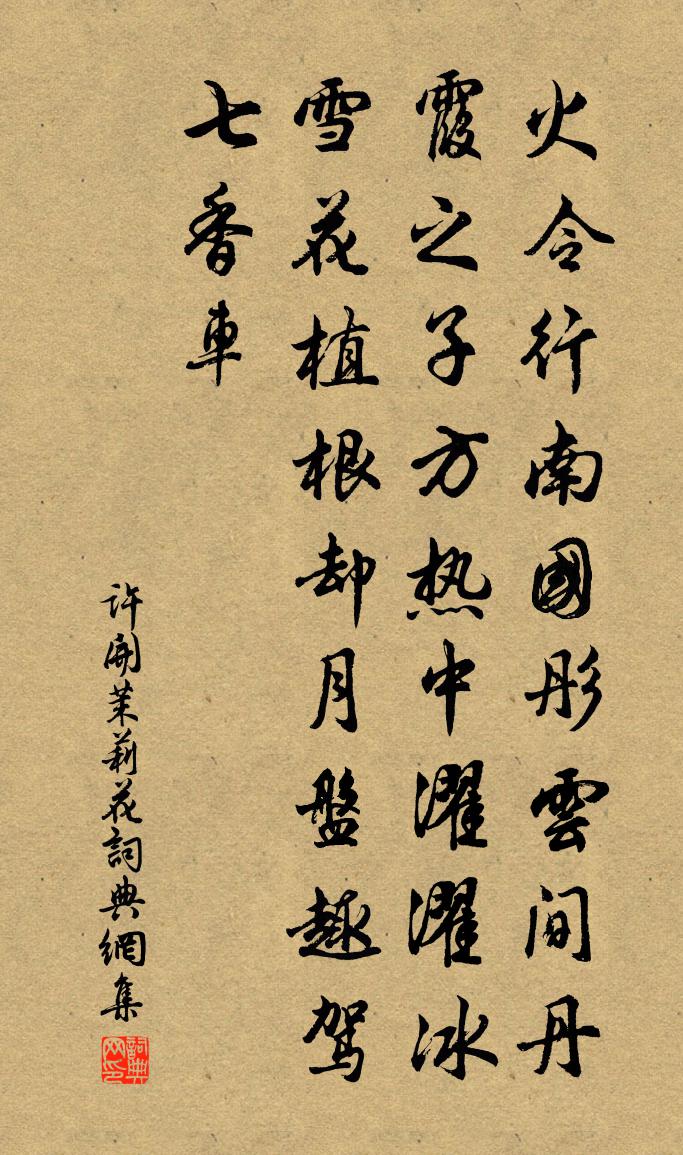 火令行南國彤雲间丹
霞之子方热中濯濯冰
雪花植根却月盤趣駕
七香車
許開茉莉花詞典網集
詞典网印